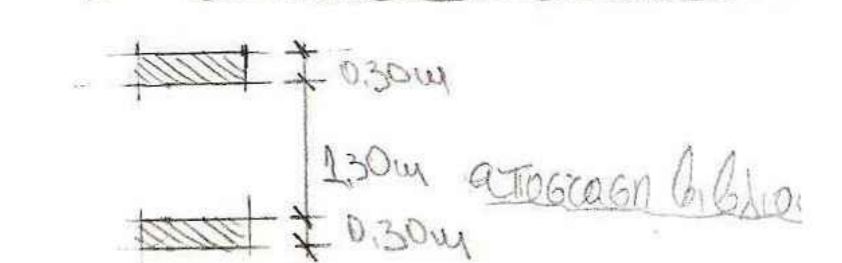 0.30m
1,30m απόσταση βιβλίο
0.30m